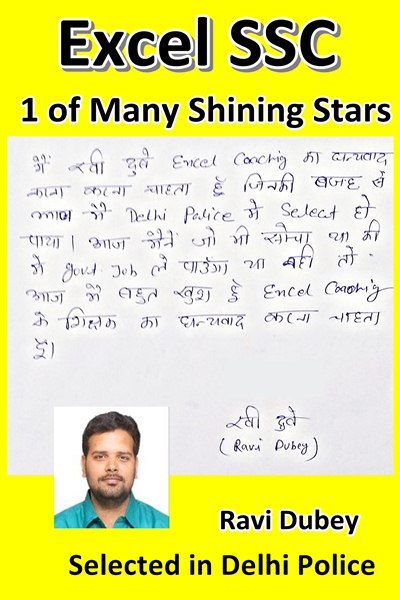 Excel SSC
1 of Many Shining Stars
मैं रवी दुबे Encel Coachig का धन्यवाद
काना करना चाहता हूँ जिनकी वजह से
आज मैं Delhi Police में Select हो
पाया। आज मैनें जो भी सोचा था की
मे govt Job ले पाउंगा या नही तो
आज मैं बहुत खुश हूँ Encel Coachig
के शिक्षक का धन्यवाद करना चाहता
हूँ।
रवी दुबे
(Ravi Dubey)
Ravi Dubey
Selected in Delhi Police